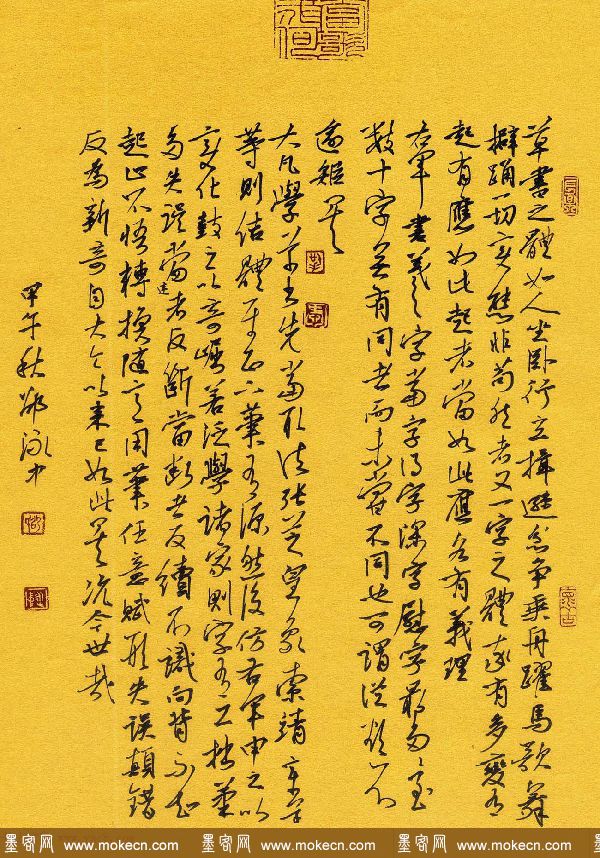 草書之體如人坐卧行立揖遜忿争乘舟躍馬歌舞
擗踊一切变態非苟然者又一字之體率有多變有
起有應如此起者當如此應各有義理
右軍書羲之字當字得字深字慰字最多至
数十字無有同者而未嘗不同也可謂從欲不
逾矩矣
大凡學草書先當取法張芝皇象索靖章草
等則结體平正下筆有源然後仿右軍申之以
变化鼓之以奇崛若泛學諸家則字有工拙筆
多失误當連者反斷當斷者反續不識向背不知
起止不悟轉换随意用筆任意赋形失误顛錯
反為新奇自大令以来已如此矣況今世哉
甲午秋
墨客网 www.mokecn.com 墨客网 www.mokecn.com 墨客网 www.mokecn.com